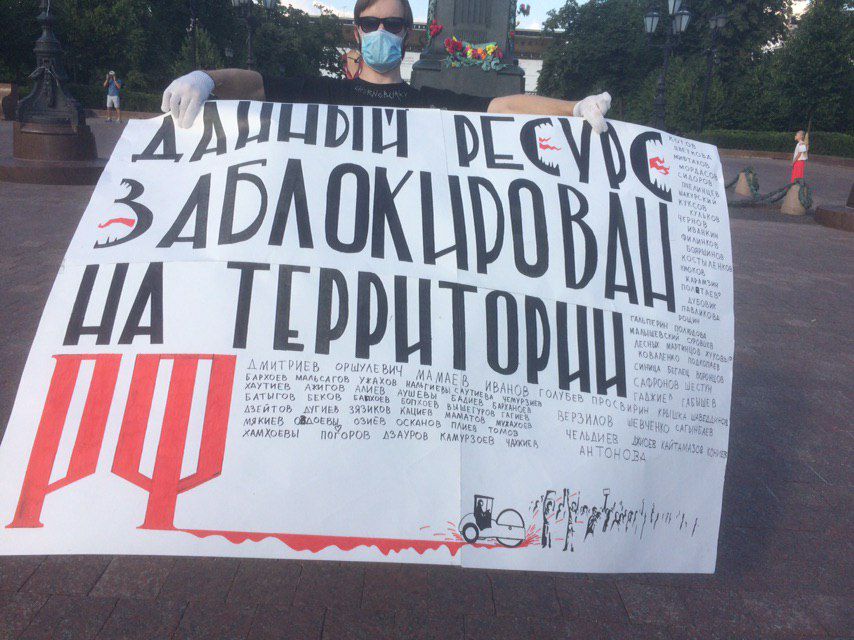 ДАННЫЙ РЕСУРС
ЗАБЛОКИРОВАН
НА ТЕРРИТОРИИ
РФ
КОТОВ
МИФТАХОВ
МОРДАСОВ
СИДОРОВ
ПЧЕЛИНЦЕВ
ШАКУРСКИЙ
КУКСОВ
КУЛЬКОВ
ЧЕРНОВ
ИВАНКИН
ФИЛИНКОВ
БОЯРШИНОВ
КОСТЫЛЕНКОВ
КРЮКОВ
КАРАМЗИН
ПОЛЕТАЕВ
ДУБОВИК
ПАВЛИКОВА
РОЩИН
ГАЛЬПЕРИН ПОЛЮДОВА
МАЛЫШЕВСКИЙ СУРОВЦЕВ
ЛЕСНЫХ МАРТИНЦОВ ЖУКОВЫ
КОВАЛЕНКО ПОДКОПАЕВ
СИНИЦА БЕГЛЕЦ ВОРОНЦОВ
САФРОНОВ ШЕСТУН
ГАДЖИЕВ ГАБЫШЕВ
ДМИТРИЕВ ОРШУЛЕВИЧ МАМАЕВ ИВАНОВ ГОЛУБЕВ ПРОСВИРИН КРЫШКА ШАВЕДДИНОВ
БАРХОЕВ МАЛЬСАГОВ УЖАХОВ НАЛЬГИЕВЫ САУТИЕВА ЧЕМУРЗИЕВ
ХАУТИЕВ АЖИГОВ АЛИЕВ АУШЕВЫ БАДИЕВ БАРХАНОЕВ
БАТЫГОВ БЕКОВ БАБХОЕВ БОПХОЕВ ВЫШЕГУРОВ ГАГИЕВ
ДЗЕЙТОВ ДУГИЕВ ЗЯЗИКОВ КАЦИЕВ МАМАТОВ МУЖАХОЕВ
МЯКИЕВ ОЗДОЕВЫ ОЗИЕВ ОСКАНОВ ПЛИЕВ ТОМОВ
ХАМХОЕВЫ ПОГОРОВ ДЗАУРОВ КАМУРЗОЕВ ЧАХКИЕВ
ВЕРЗИЛОВ ШЕВЧЕНКО САГЫНБАЕВ
ЧЕЛЬДИЕВ ДЖИОЕВ КАЙТАМАЗОВ КОНИЕВ
АНТОНОВА